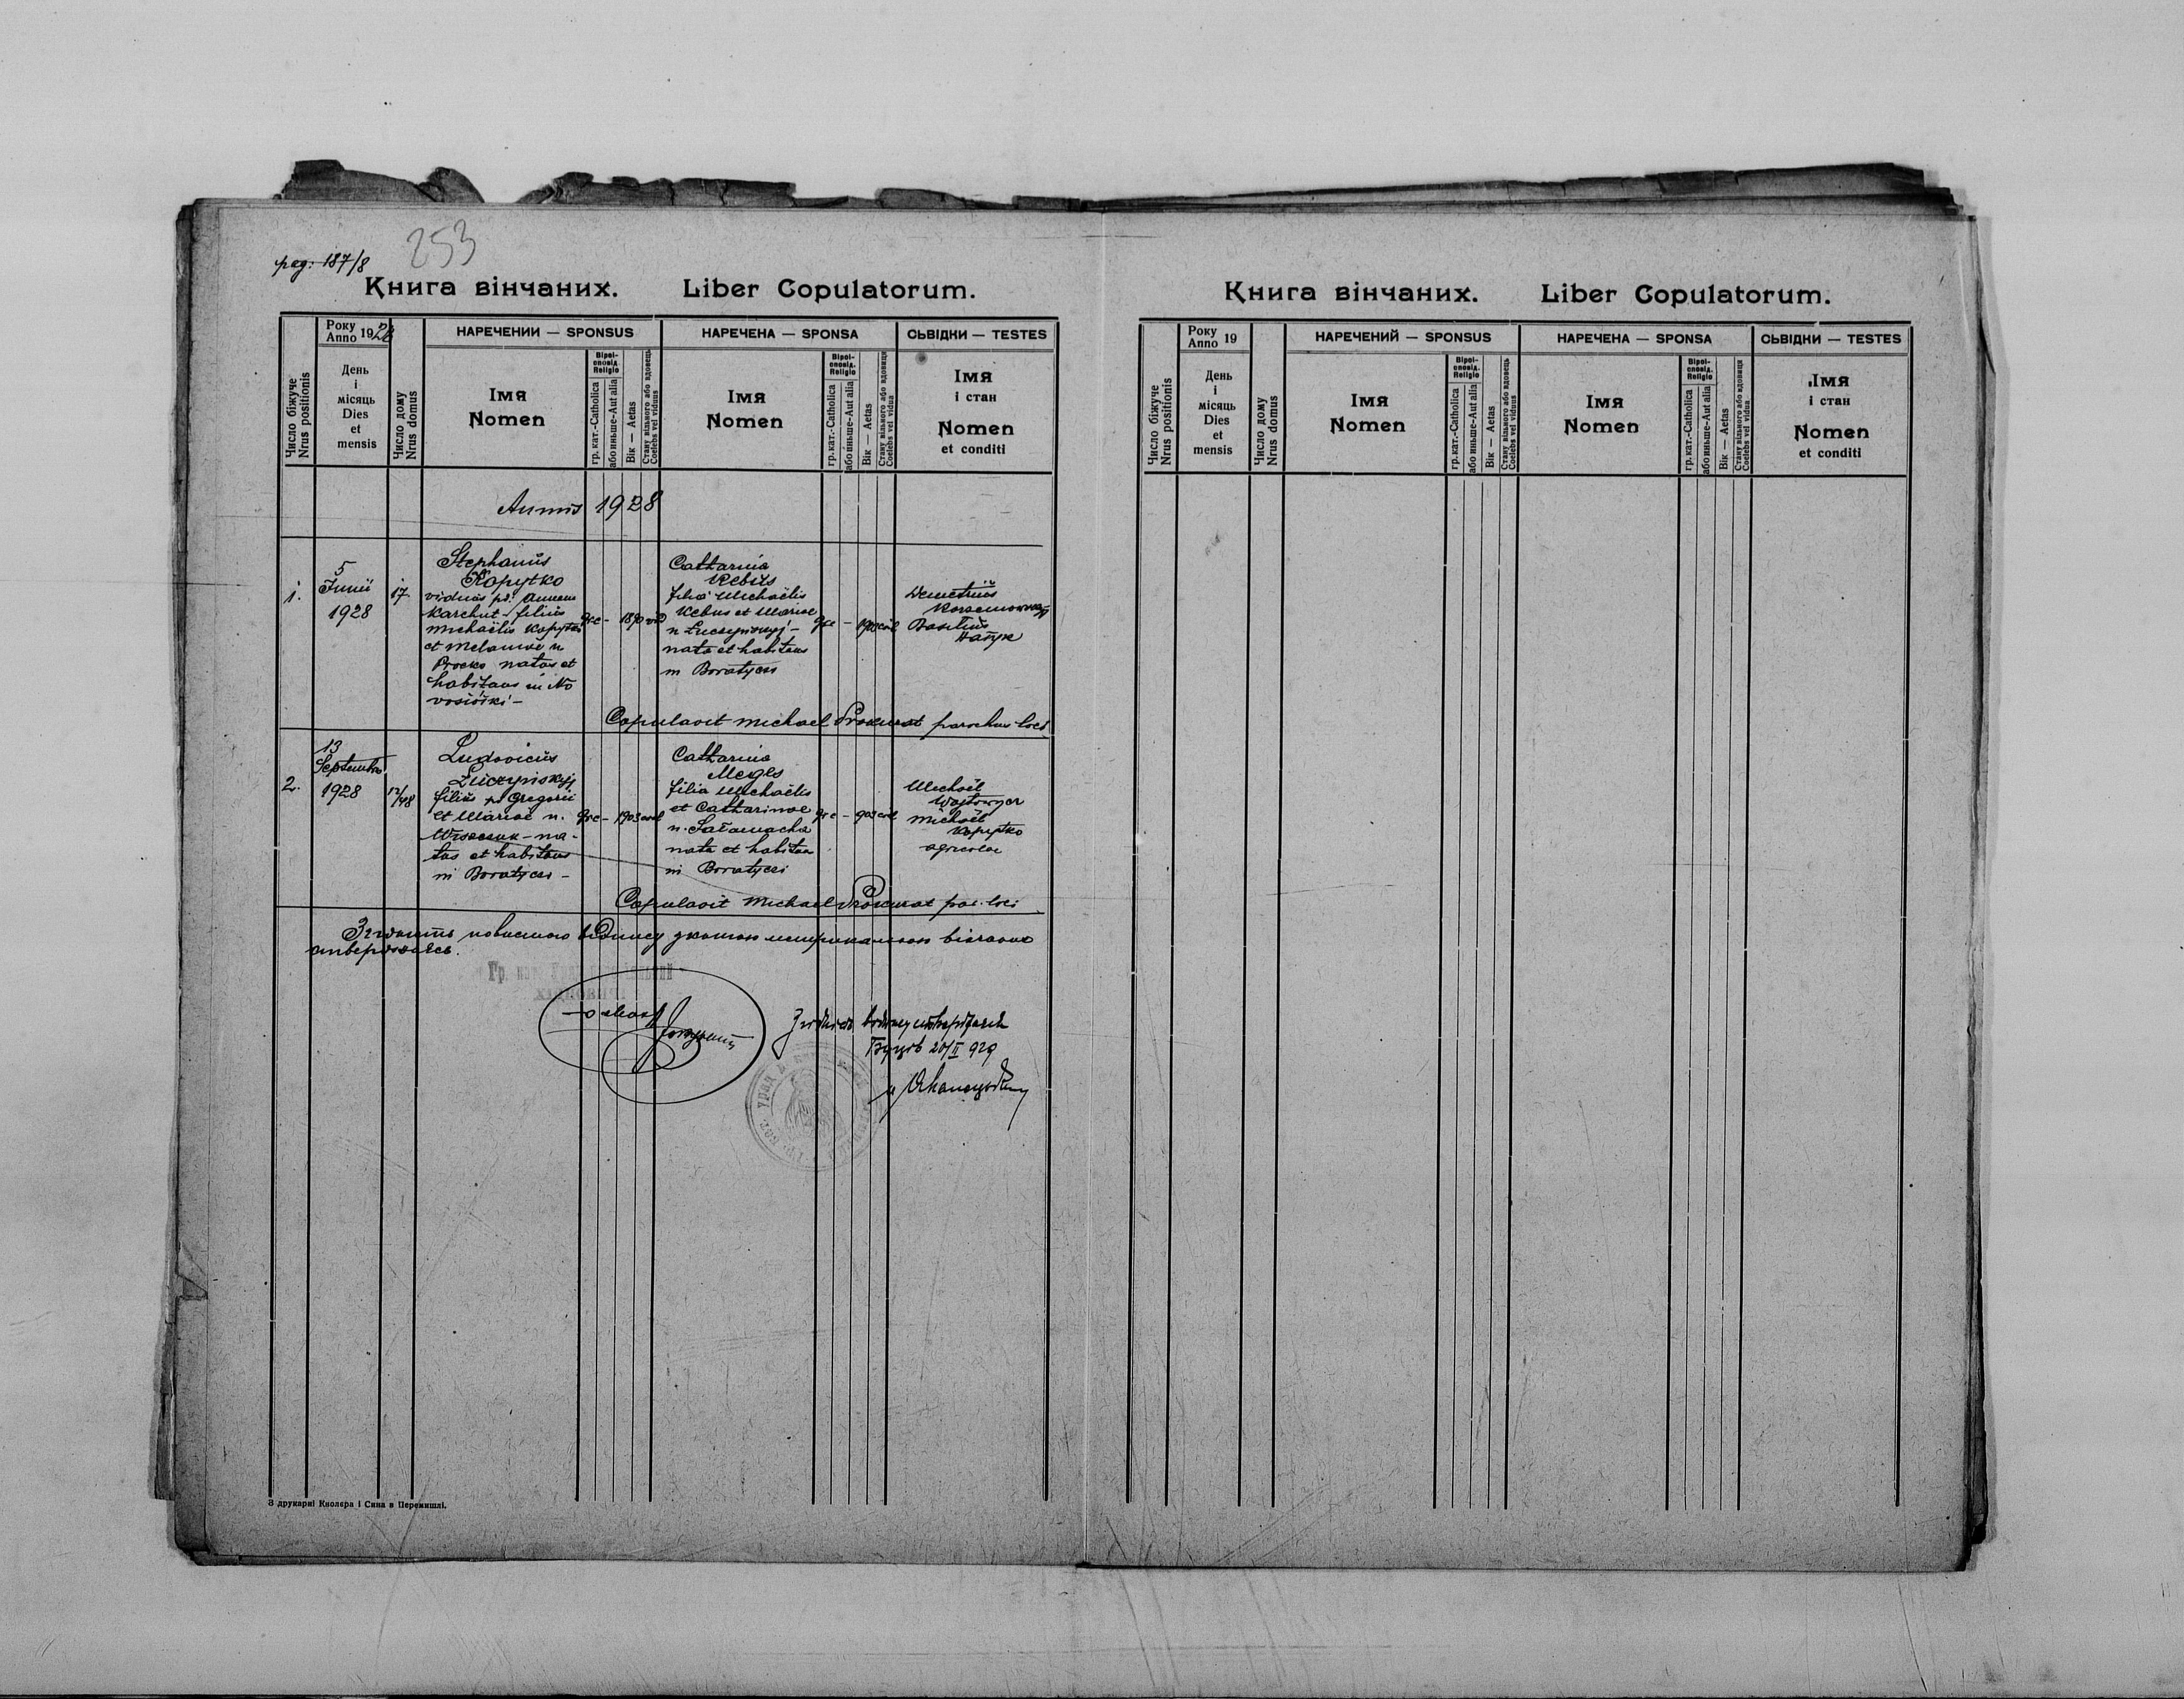 pag: 187/8
253
Книга вінчаних. Liber Copulatorum.
Число біжуче
Nrus positionis
Року
Anno 1928
День
і
місяць
Dies
et
mensis
Число дому
Nrus domus
НАРЕЧЕНИЙ — SPONSUS
Імя
Nomen
Віроі-
сповід.
Religio
гр. кат.-Catholica
або иньше-Aut alia
Вік — Aetas
Стану вільного або вдовець
Coelebs vel viduus
НАРЕЧЕНА — SPONSA
Імя
Nomen
Віроі-
сповід.
Religio
гр. кат.-Catholica
або иньше-Aut alia
Вік — Aetas
Стану вільного або вдовиця
Coelebs vel vidua
СЬВІДКИ — TESTES
Імя
і стан
Nomen
et conditi
Annus 1928
1.
5
Junii
1928
17
Stephanus
Kopytko
viduus pt. Annam
Karchut - filius
Michaëlis Kopytko
et Melaniae n.
Procko natus et
habitans in No
vosiółki -
gre - 1890 vid
Catharina
Kebus
filia Michaëlis
Kebus et Mariae
n Łuczynskyj -
nata et habitans
in Boratycze
gre - 1908 coel
Demetrius
Basilius
Hatyk
Copulavit Michael Prokurat parochus loci
2.
13
Septembris
1928
12/48
Ludovicus
Łuczynskyj
filius pt Gregorii
et Mariae n.
na-
tus et habitans
in Boratycze -
gre - 1903 coel
Catharina
Megles
filia Michaëlis
et Catharinae
n. Sałamacha
nata et habitans
in Boratycze
gre - 903 coel
Michaël
Wojtowycz
Michaël
Kopytko
agricolae
Copulavit Michael Prokurat par. loci
Згідність повисшого відпису з метрикальною
стверджаєсь.
Гр. кат. Уряд
Згідність відпису стверджаєсь
20/II 929
З друкарні Кнолєра і Сина в Перемишлі.
Книга вінчаних. Liber Copulatorum.
Число біжуче
Nrus positionis
Року
Anno 19
День
і
місяць
Dies
et
mensis
Число дому
Nrus domus
НАРЕЧЕНИЙ — SPONSUS
Імя
Nomen
Віроі-
сповід.
Religio
гр. кат.-Catholica
або иньше-Aut alia
Вік — Aetas
Стану вільного або вдовець
Coelebs vel viduus
НАРЕЧЕНА — SPONSA
Імя
Nomen
Віроі-
сповід.
Religio
гр. кат.-Catholica
або иньше-Aut alia
Вік — Aetas
Стану вільного або вдовиця
Coelebs vel vidua
СЬВІДКИ — TESTES
Імя
і стан
Nomen
et conditi